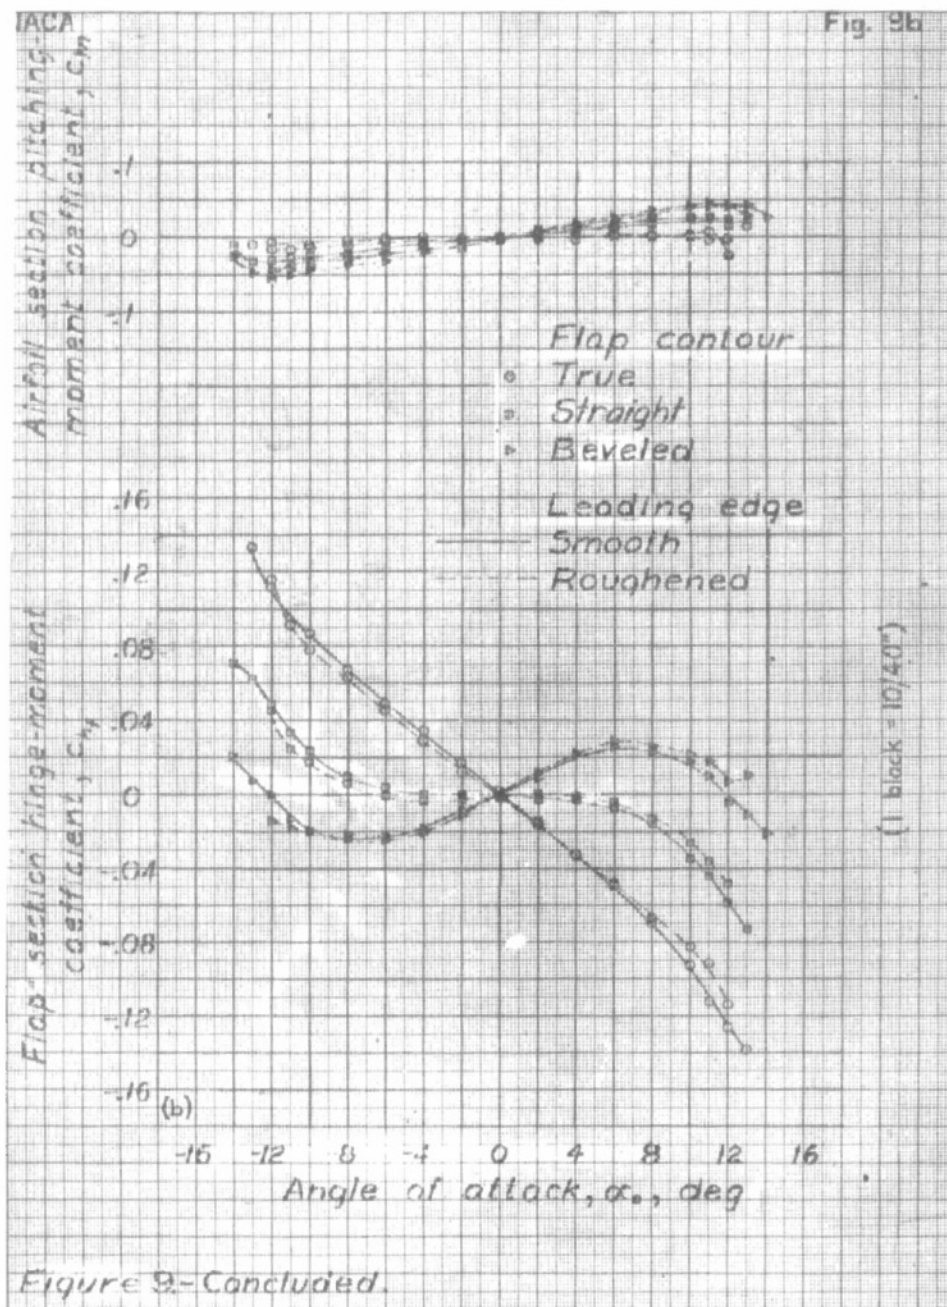 NACA
Fig. 9b
Airfoil section pitching-
moment coefficient, cm
.1
0
-.1
Flap contour
True
Straight
Beveled
Leading edge
Smooth
Roughened
Flap section hinge-moment
coefficient, chf
.16
.12
.08
.04
0
-.04
-.08
-.12
-.16
(b)
-16 -12 -8 -4 0 4 8 12 16
Angle of attack, α₀, deg
(1 block = 10/40")
Figure 9.- Concluded.